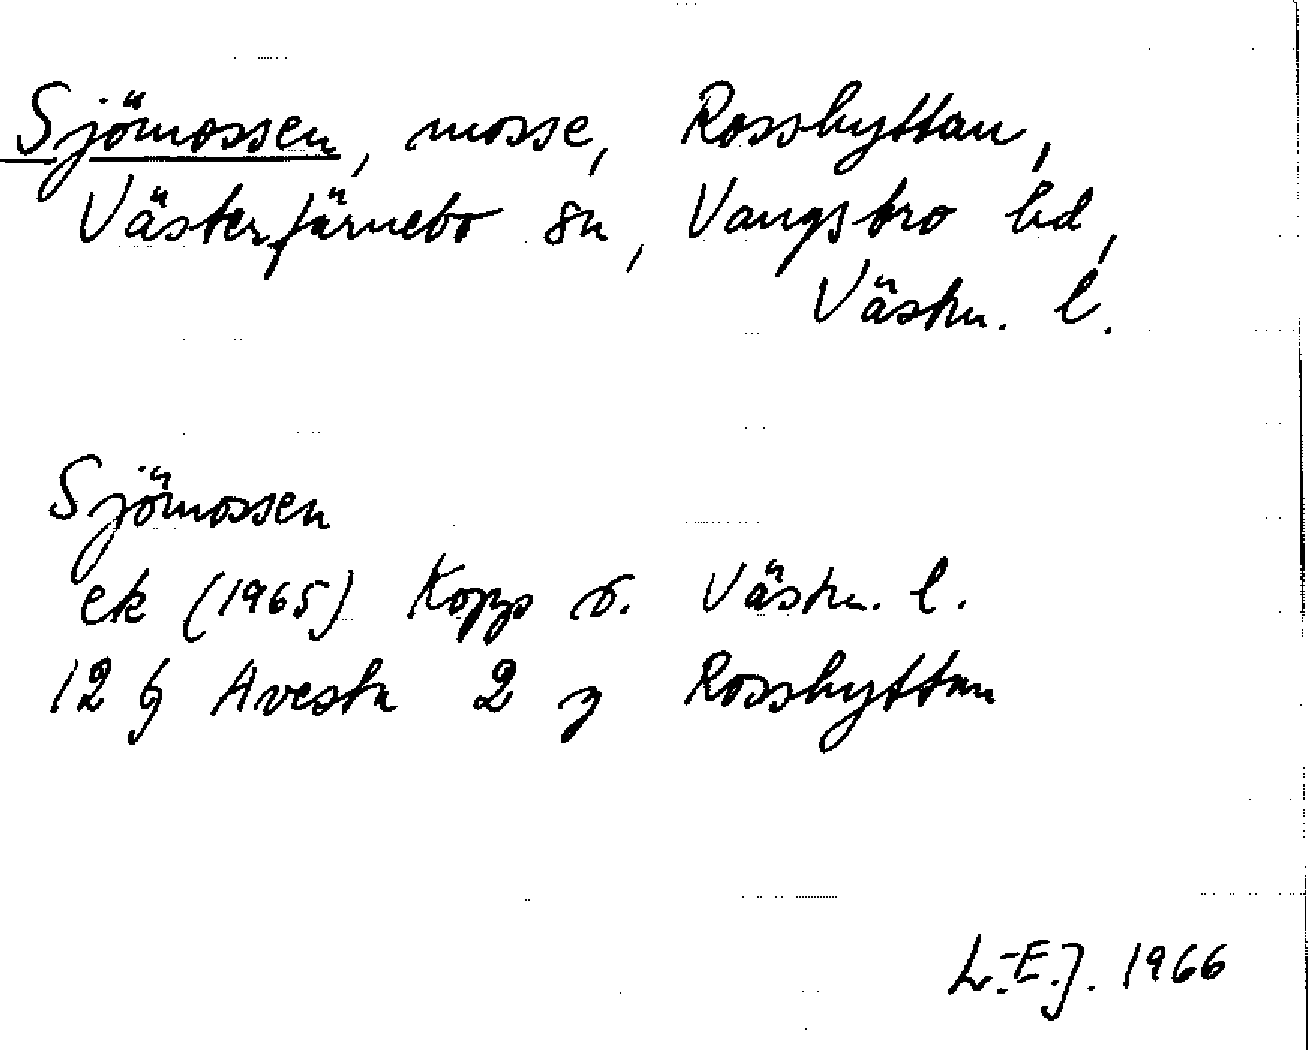 Sjömossen, mosse, Rosshyttan,
Västerfärnebo sn, Vangsbro hd,
Västm. l.
Sjömossen
ek (1965) Kopp o. Västm. l.
12 G Avesta 2 g Rosshyttan
L.-E.J. 1966